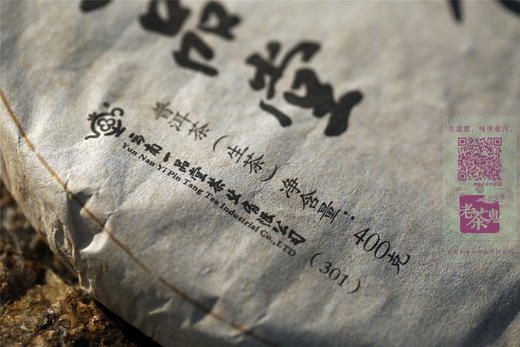 品堂
普洱茶（生茶）净含量：400克
云南一品堂茶业有限公司（301）
Yun Nan Yi Pin Tang Tea Industrial Co.,LTD
在这里，喝懂普洱，
老茶鬼